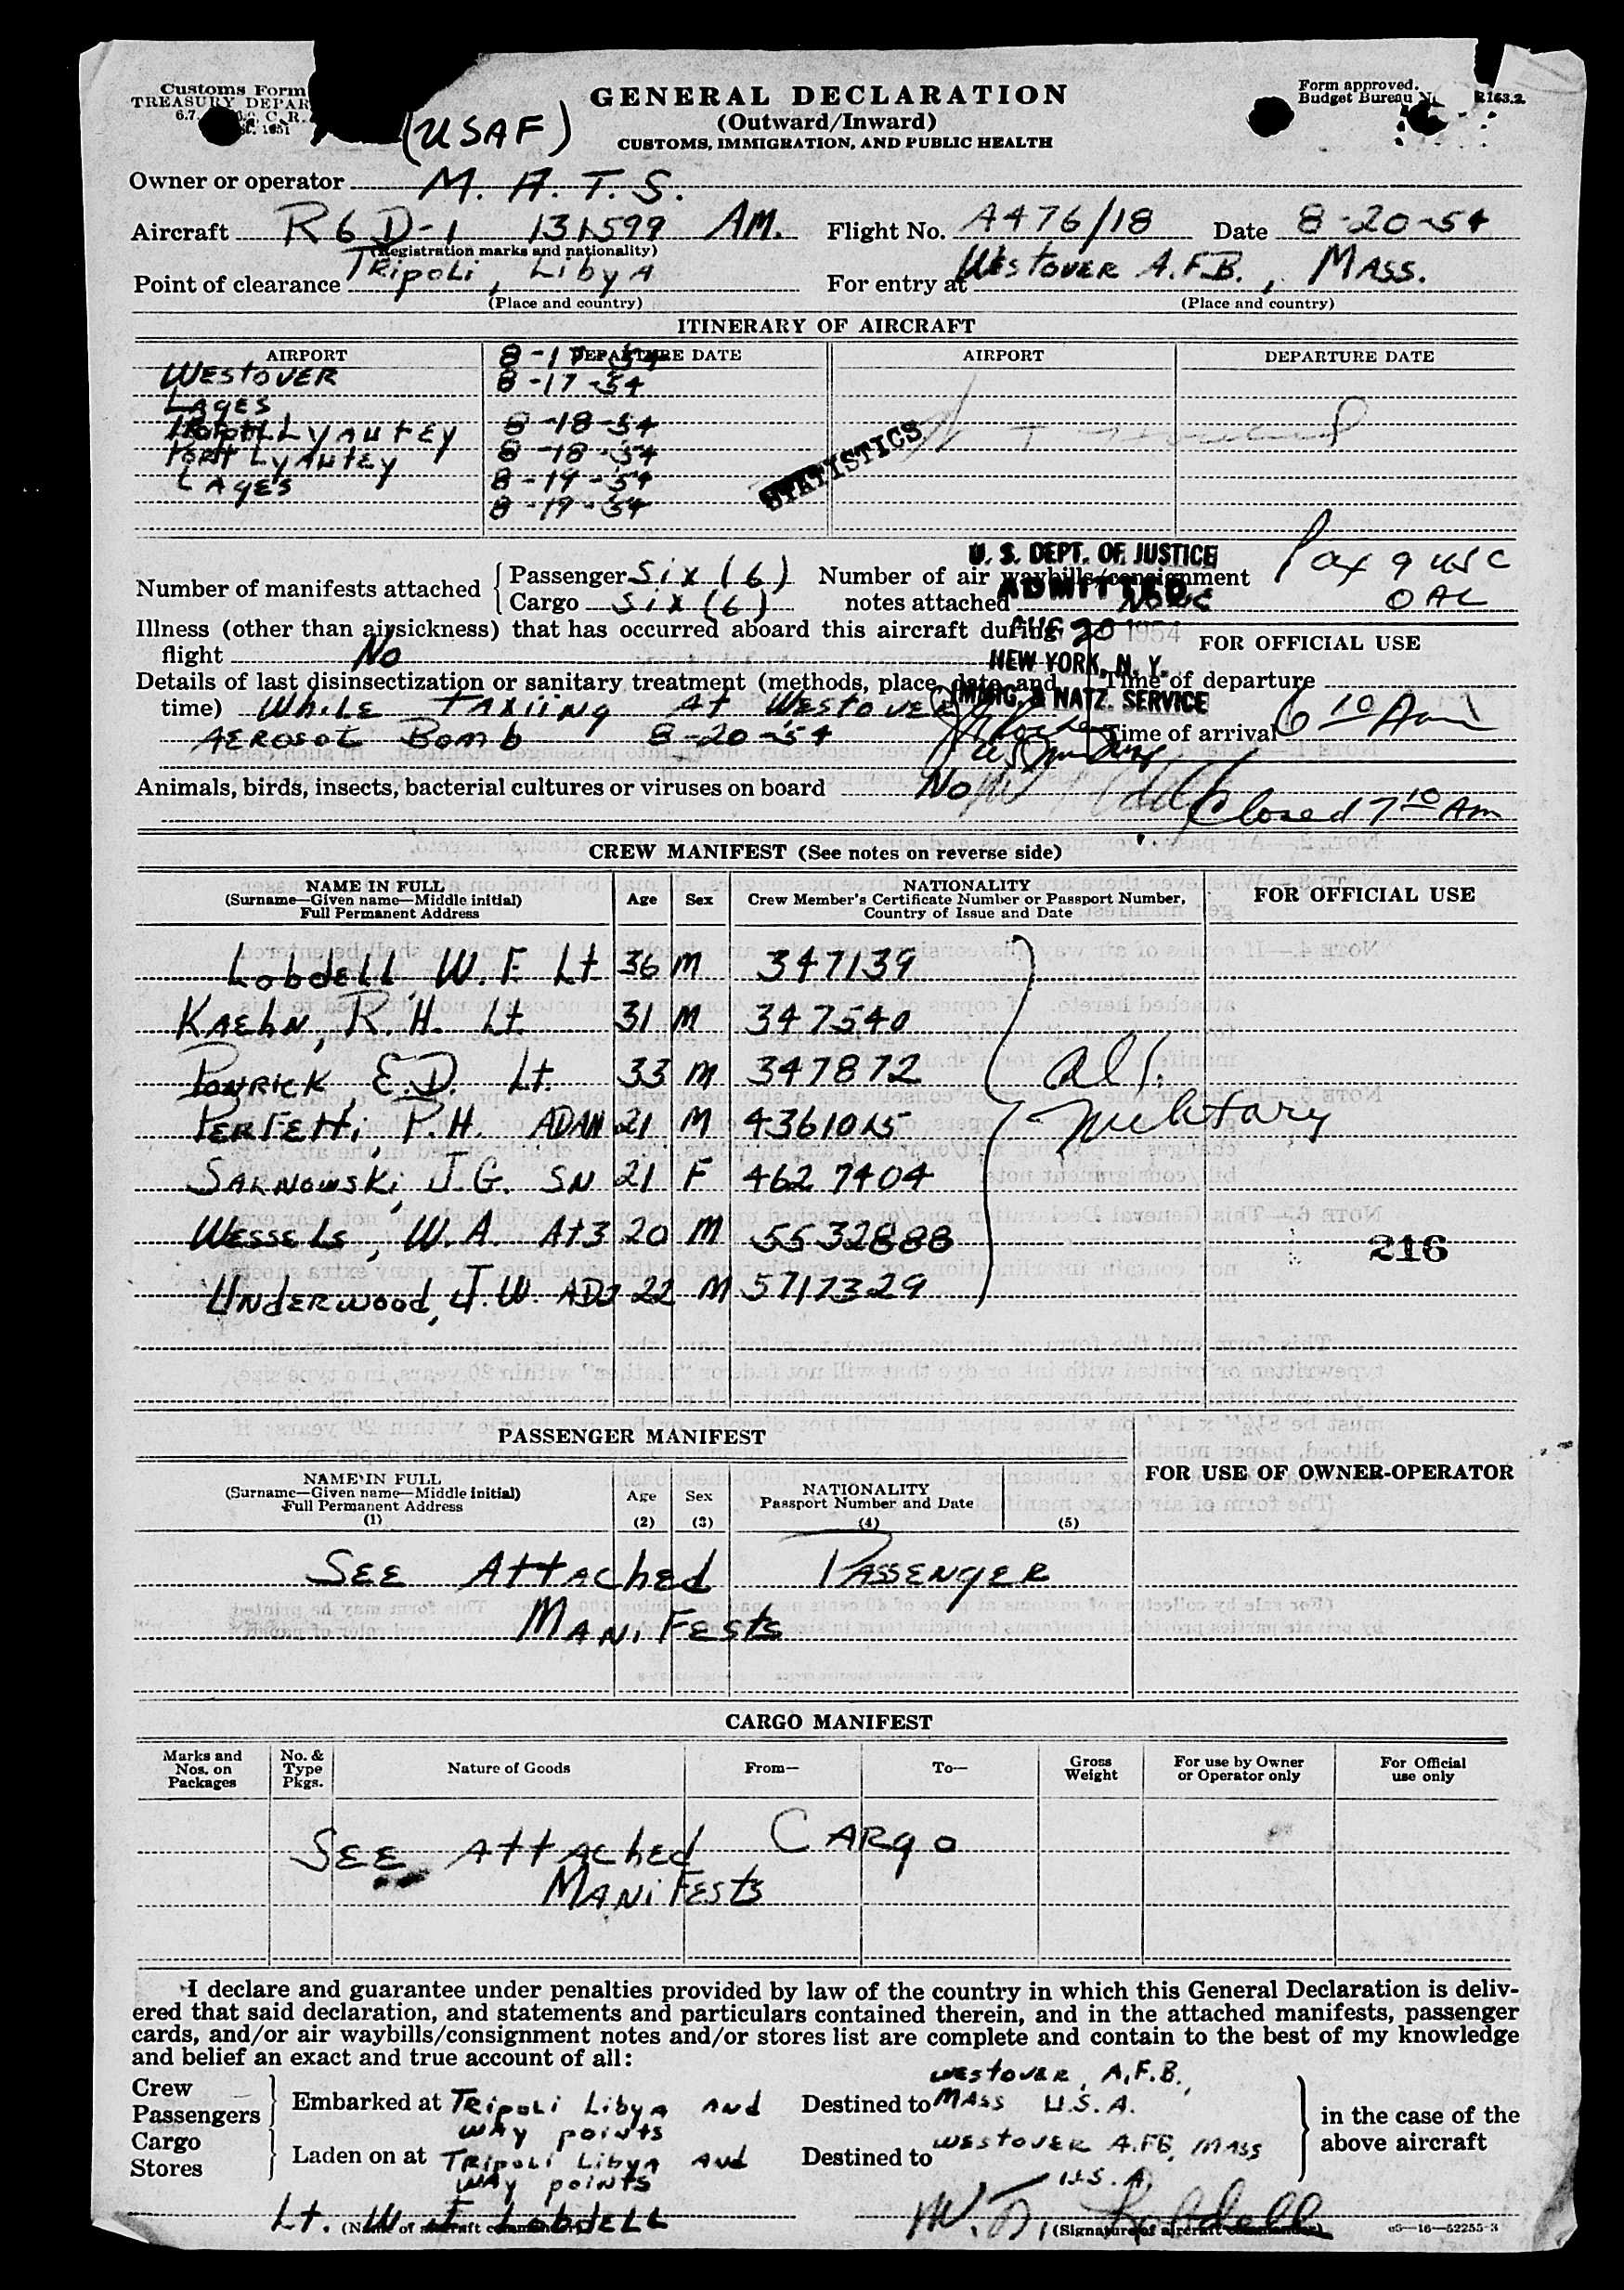 Customs Form
TREASURY DEPAR
GENERAL DECLARATION
(Outward/Inward)
CUSTOMS, IMMIGRATION, AND PUBLIC HEALTH
Form approved.
Budget Bureau
(USAF)
Owner or operator M. A. T. S.
Aircraft R6D-1 131599 AM. Flight No. A476/18 Date 8-20-54
(Registration marks and nationality)
Point of clearance TRipoli, LibyA For entry at WEStOVER A.F.B., MASS.
(Place and country) (Place and country)
ITINERARY OF AIRCRAFT
AIRPORT DEPARTURE DATE AIRPORT DEPARTURE DATE
WEStOVER 8-17-54
LAgES
LyAutEy 8-18-54
PORt LyAutEy 8-18-54
LAgES 8-19-54
8-19-54
STATISTICS
U. S. DEPT. OF JUSTICE
ADMITTED
AUG 20 1954
NEW YORK, N. Y.
IMMIG. & NATZ. SERVICE
Number of manifests attached Passenger Six (6) Number of air waybills/consignment
Cargo Six (6) notes attached NONE
Pax 9 USC
0 AL
Illness (other than airsickness) that has occurred aboard this aircraft during
flight No
FOR OFFICIAL USE
Details of last disinsectization or sanitary treatment (methods, place, date and
time) WhiLE tAXiiNg At WEStOVER
AEROSOL BOMb 8-20-54
Time of departure
Time of arrival 6 10 Am
Animals, birds, insects, bacterial cultures or viruses on board No
Closed 7 10 Am
CREW MANIFEST (See notes on reverse side)
NAME IN FULL
(Surname—Given name—Middle initial)
Full Permanent Address
Age Sex
NATIONALITY
Crew Member's Certificate Number or Passport Number,
Country of Issue and Date
FOR OFFICIAL USE
LobdELL, W.F. Lt 36 M 347139
KAEhN, R.H. Lt. 31 M 347540
E.D. Lt. 33 M 347872
PERFEtti, P.H. ADAN 21 M 4361015
SARNOWSKi, J.G. SN 21 F 4627404
WESSELS, W.A. At3 20 M 5532888
UNDERWOOd, J.W. AD3 22 M 5717329
All
Military
216
PASSENGER MANIFEST
NAME IN FULL
(Surname—Given name—Middle initial)
Full Permanent Address
(1)
Age
(2)
Sex
(3)
NATIONALITY
Passport Number and Date
(4) (5)
FOR USE OF OWNER-OPERATOR
SEE AttAchEd PASSENgER
MANiFEStS
CARGO MANIFEST
Marks and Nos. on Packages
No. & Type Pkgs.
Nature of Goods
From—
To—
Gross Weight
For use by Owner or Operator only
For Official use only
SEE AttAchEd CARgO
MANiFEStS
I declare and guarantee under penalties provided by law of the country in which this General Declaration is deliv-
ered that said declaration, and statements and particulars contained therein, and in the attached manifests, passenger
cards, and/or air waybills/consignment notes and/or stores list are complete and contain to the best of my knowledge
and belief an exact and true account of all:
Crew
Passengers
Embarked at TRipoLi LibyA ANd
WAy poiNtS
Destined to WEStOVER, A.F.B.,
MASS U.S.A.
Cargo
Stores
Laden on at TRipoLi LibyA ANd
WAy poiNtS
Destined to WEStOVER A.FB, MASS
U.S.A.
in the case of the
above aircraft
Lt. W. F. LobdELL
(Name of aircraft commander)
W. F. Lobdell
(Signature of aircraft commander)
c6—16—52255-3